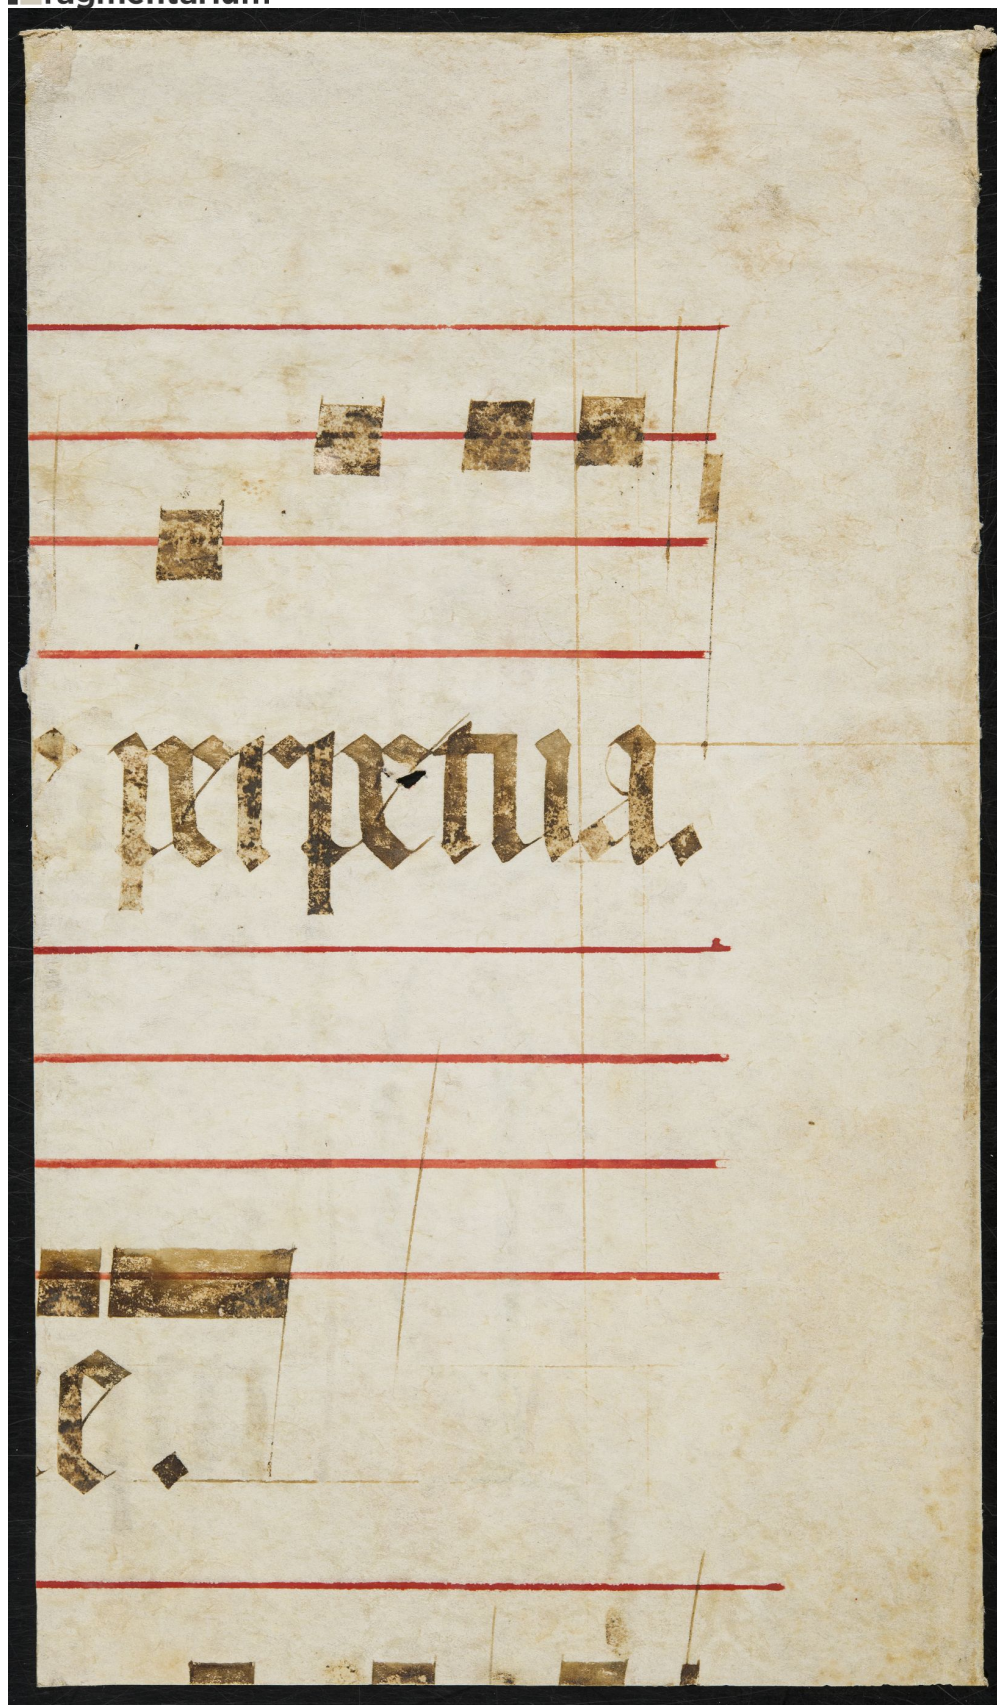 fragmentarium
perpetua.
e.